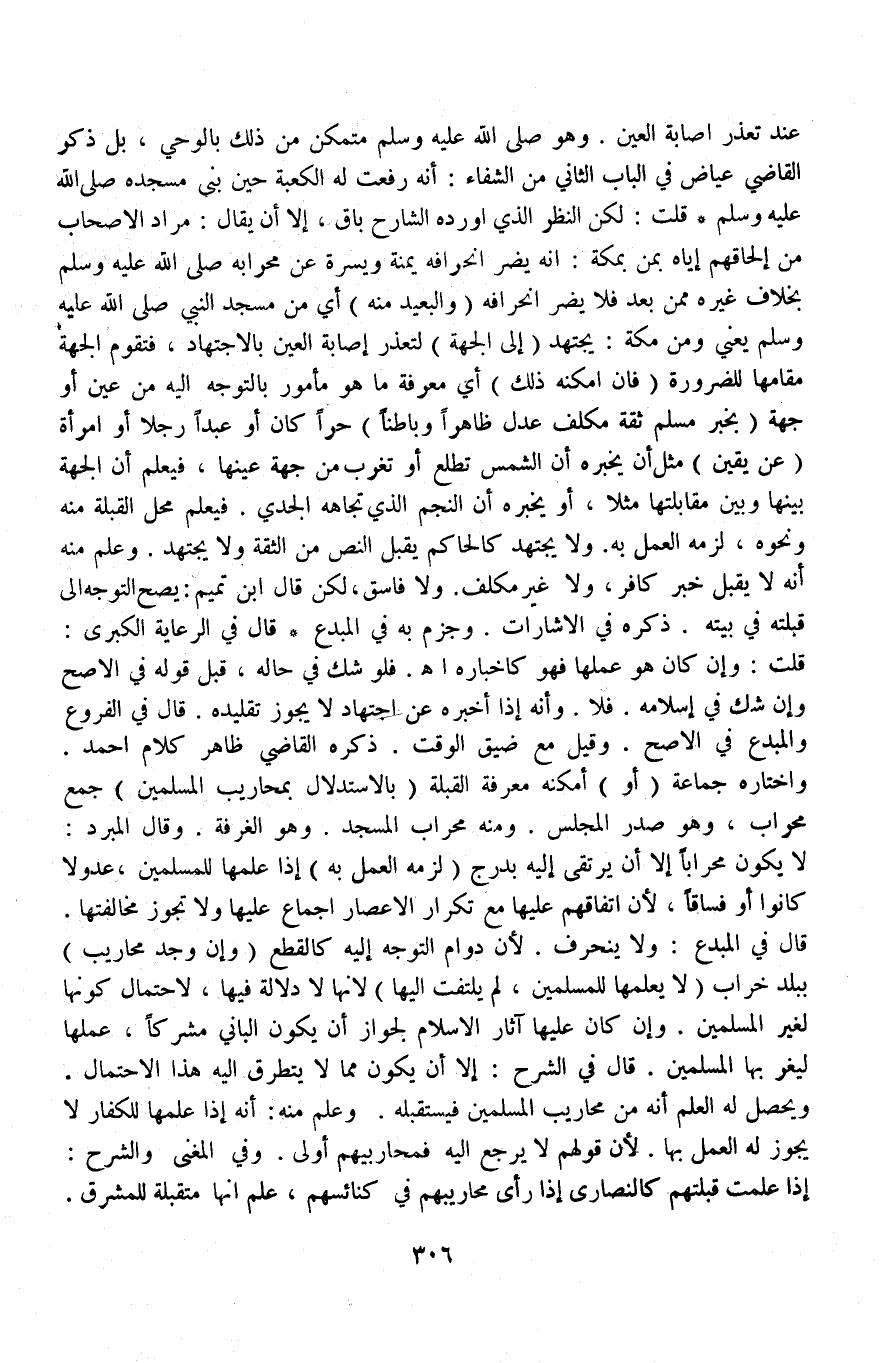 عند تعذر اصابة العين . وهو صلى الله عليه وسلم متمكن من ذلك بالوحي ، بل ذكر
القاضي عياض في الباب الثاني من الشفاء : أنه رفعت له الكعبة حين بنى مسجده صلى الله
عليه وسلم * قلت : لكن النظر الذي اورده الشارح باق ، إلا أن يقال : مراد الاصحاب
من إلحاقهم إياه بمن بمكة : انه يضر انحرافه يمنة ويسرة عن محرابه صلى الله عليه وسلم
بخلاف غيره ممن بعد فلا يضر انحرافه ( والبعيد منه ) أي من مسجد النبي صلى الله عليه
وسلم يعني ومن مكة : يجتهد ( إلى الجهة ) لتعذر إصابة العين بالاجتهاد ، فتقوم الجهة
مقامها للضرورة ( فان امكنه ذلك ) أي معرفة ما هو مأمور بالتوجه اليه من عين أو
جهة ( بخبر مسلم ثقة مكلف عدل ظاهراً وباطناً ) حراً كان أو عبداً رجلا أو امرأة
( عن يقين ) مثل أن يخبره أن الشمس تطلع أو تغرب من جهة عينها ، فيعلم أن الجهة
بينها وبين مقابلتها مثلا ، أو يخبره أن النجم الذي تجاهه الجدي . فيعلم محل القبلة منه
ونحوه ، لزمه العمل به. ولا يجتهد كالحاكم يقبل النص من الثقة ولا يجتهد . وعلم منه
أنه لا يقبل خبر كافر ، ولا غير مكلف. ولا فاسق ، لكن قال ابن تميم : يصح التوجه الى
قبلته في بيته . ذكره في الاشارات . وجزم به في المبدع * قال في الرعاية الكبرى :
قلت : وإن كان هو عملها فهو كاخباره ا ه . فلو شك في حاله ، قبل قوله في الاصح
وإن شك في إسلامه . فلا . وأنه إذا أخبره عن اجتهاد لا يجوز تقليده . قال في الفروع
والمبدع في الاصح . وقيل مع ضيق الوقت . ذكره القاضي ظاهر كلام احمد .
واختاره جماعة ( أو ) أمكنه معرفة القبلة ( بالاستدلال بمحاريب المسلمين ) جمع
محراب ، وهو صدر المجلس . ومنه محراب المسجد . وهو الغرفة . وقال المبرد :
لا يكون محراباً إلا أن يرتقى إليه بدرج ( لزمه العمل به ) إذا علمها للمسلمين ، عدولا
كانوا أو فساقاً ، لأن اتفاقهم عليها مع تكرار الاعصار اجماع عليها ولا تجوز مخالفتها .
قال في المبدع : ولا ينحرف . لأن دوام التوجه إليه كالقطع ( وإن وجد محاريب )
ببلد خراب ( لا يعلمها للمسلمين ، لم يلتفت اليها ) لانها لا دلالة فيها ، لاحتمال كونها
لغير المسلمين . وإن كان عليها آثار الاسلام لجواز أن يكون الباني مشركاً ، عملها
ليغر بها المسلمين . قال في الشرح : إلا أن يكون مما لا يتطرق اليه هذا الاحتمال .
ويحصل له العلم أنه من محاريب المسلمين فيستقبله . وعلم منه : أنه إذا علمها للكفار لا
يجوز له العمل بها . لأن قولهم لا يرجع اليه فمحاريبهم أولى . وفي المغنى والشرح :
إذا علمت قبلتهم كالنصارى إذا رأى محاريبهم في كنائسهم ، علم انها متقبلة للمشرق .
٣٠٦